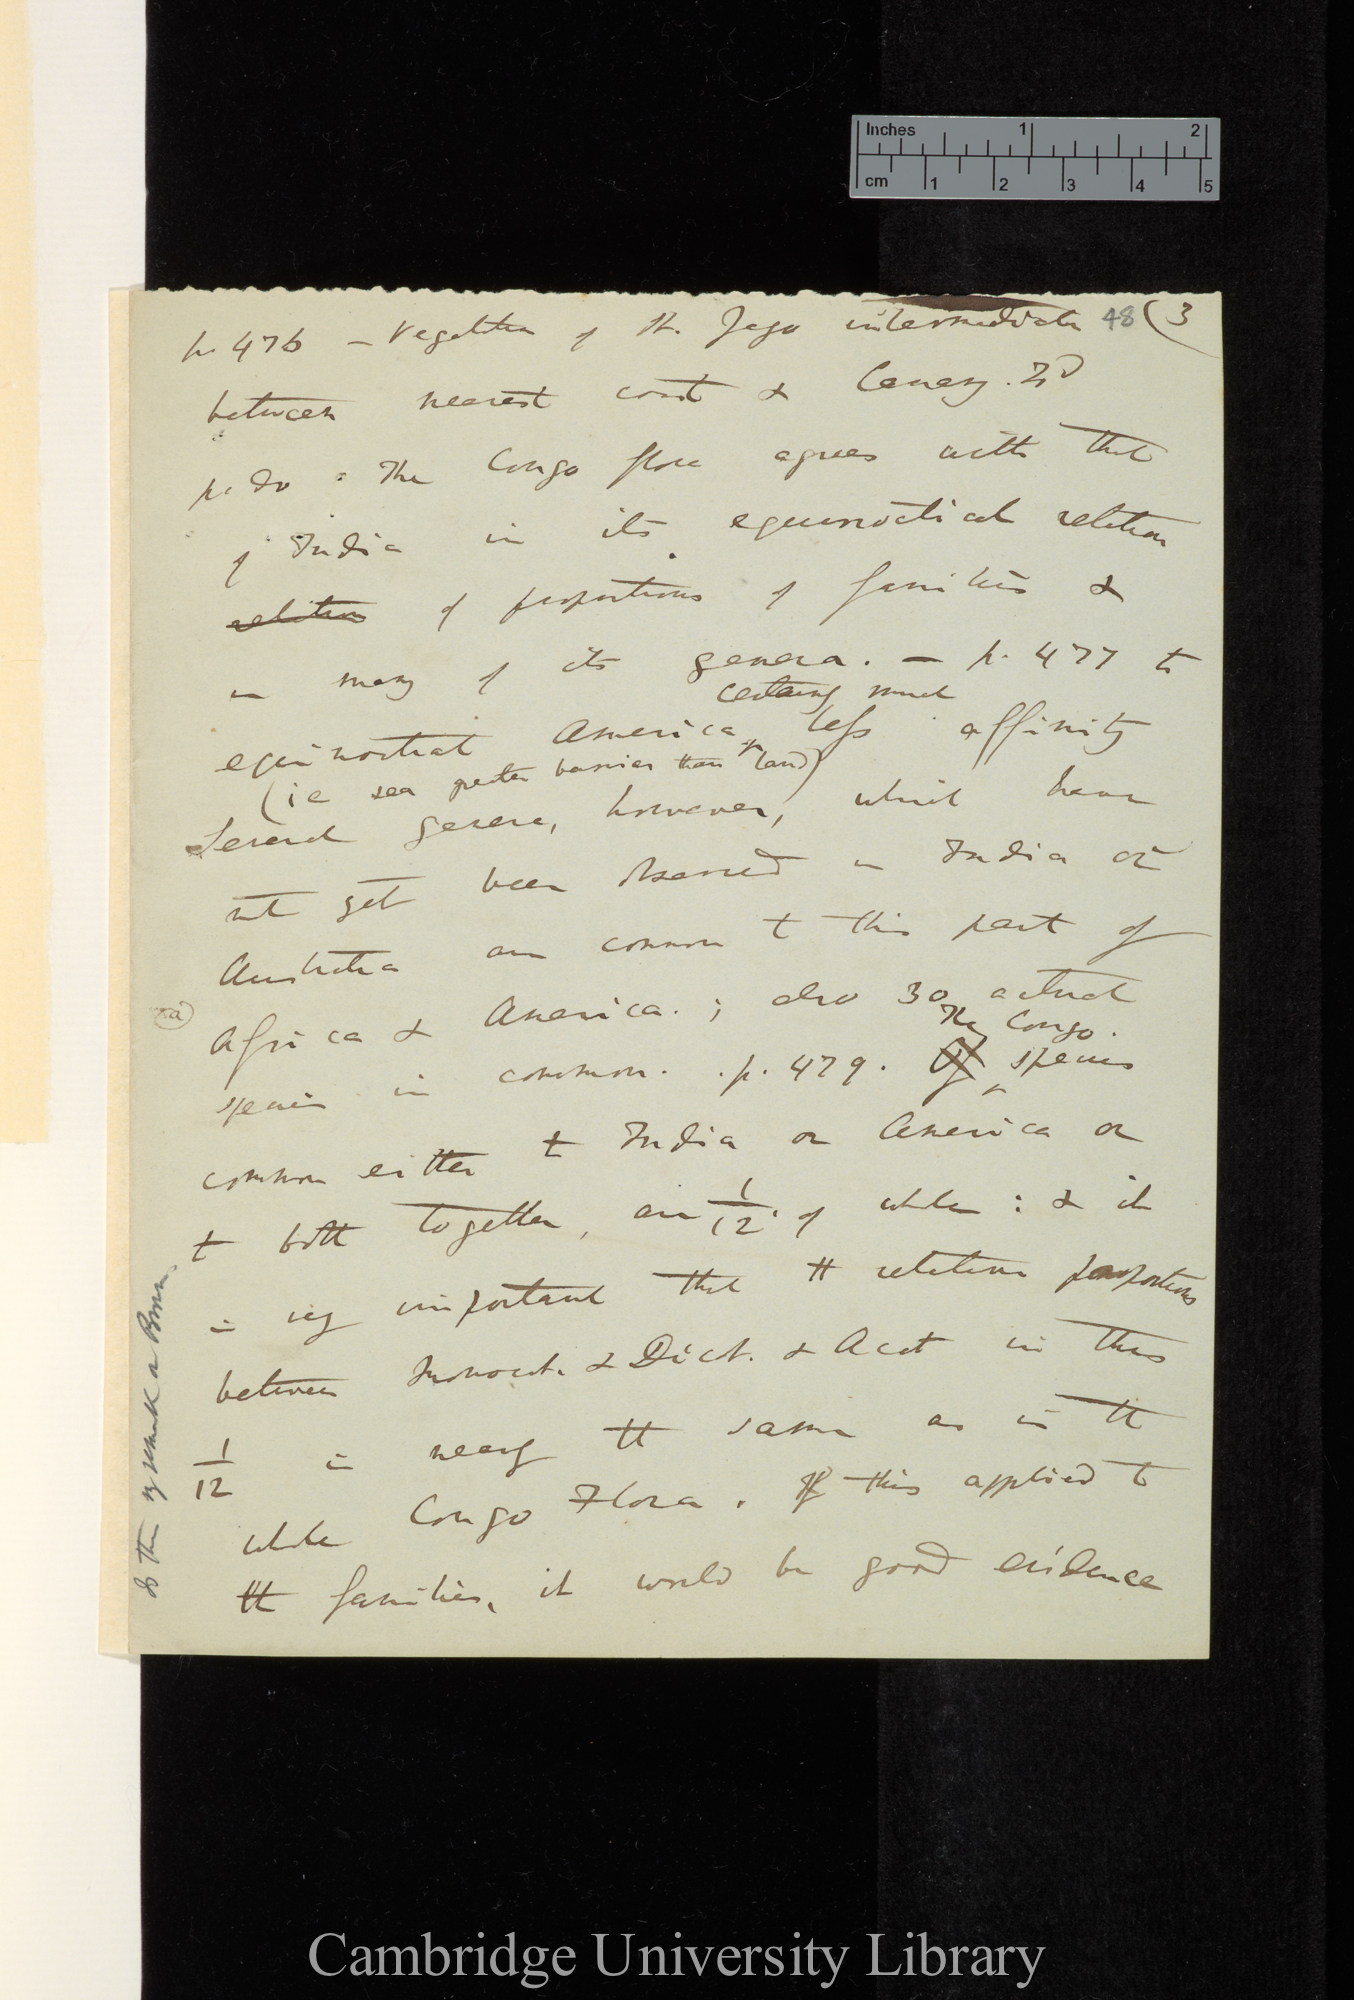 Inches 1 2
cm 1 2 3 4 5
48 (3
p. 476 — Vegetation of St. Jago intermediate
between nearest coast & Canary. Isd
p. do : The Congo flora agrees with that
of India in its equinoctial relation
relations of proportions of families &
in many of its genera. — p. 477 to
certainly much
equinoctial America, less affinity
(ie sea greater barrier than land)
Several genera, however, which have
not yet been observed in India or
Australia are common to this part of
(a)
Africa & America. ; also 30 actual
The Congo.
species in common. p. 479. Of species
common either to India or America or
to both together, are 1/12 of whole : & it
is very important that the relative proportions
between Monocot. & Dicot. & Acot in this
1/12 is nearly the same as in the
whole Congo Flora. If this applied to
the families, it would be good evidence
Is this my remark or Brown
Cambridge University Library